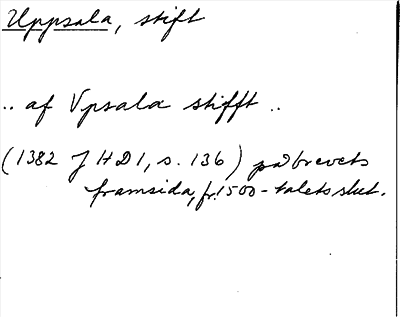 Uppsala, stift
.. af Vpsala stifft ..
(1382 J HD 1, s. 136) på brevets
framsida, fr. 1500-talets slut.